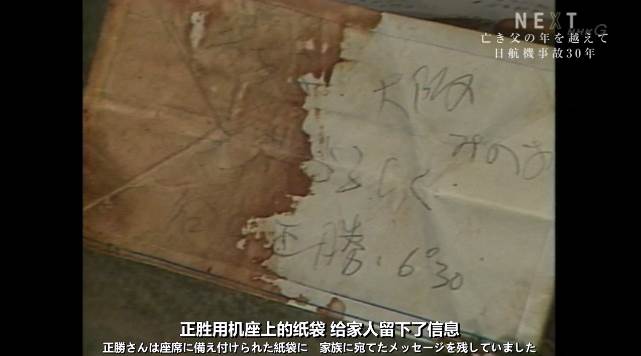 NEXT
亡き父の年を越えて
日航機事故30年
大阪 みのお
ろしく
正勝 6°30
正胜用机座上的纸袋 给家人留下了信息
正勝さんは座席に備え付けられた紙袋に 家族に宛てたメッセージを残していました